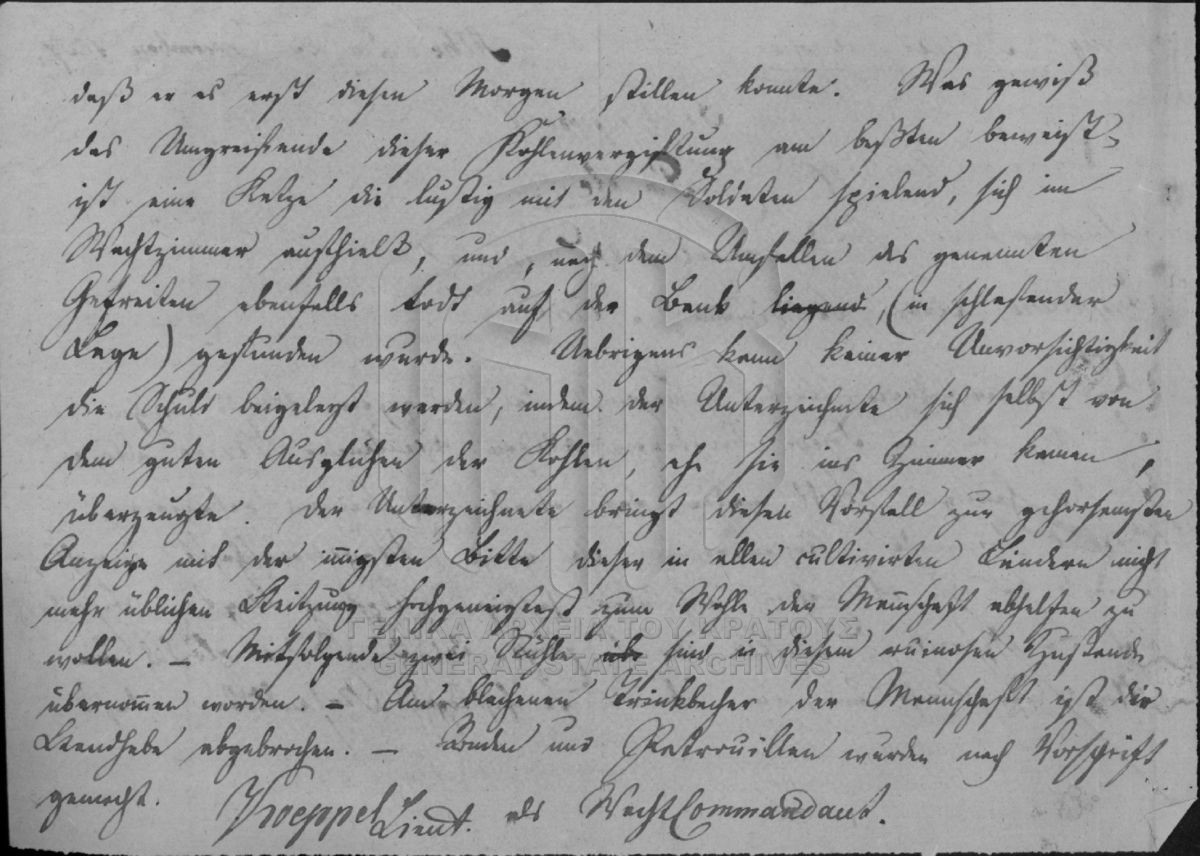 daß er es erst diesen Morgen stillen konnte. Was gewiß
das Umgreifende dieser Kohlenvergiftung am beßten beweist,
ist eine Katze die lustig mit den Soldaten spielend, sich im
Wachtzimmer aufhielt, und, nach dem Umfallen des genannten
Gefreiten ebenfalls todt auf der Bank liegend, (in schlafender
Lage) gefunden wurde. Uebrigens kann keiner Unvorsichtigkeit
die Schuld beigelegt werden, indem der Unterzeichnete sich selbst von
dem guten Ausglühen der Kohlen, ehe sie ins Zimmer kamen,
überzeugte. Der Unterzeichnete bringt diesen Vorfall zur gehorsamsten
Anzeige mit der innigsten Bitte dieser in allen cultivirten Ländern nicht
mehr üblichen Heitzung hochgeneigtest zum Wohle der Mannschaft abhelfen zu
wollen. – Mitfolgende zwei Stühle sind in diesem ruinosen Zustande
ΓΕΝΙΚΑ ΑΡΧΕΙΑ ΤΟΥ ΚΡΑΤΟΥΣ
GENERAL STATE ARCHIVES
übernommen worden. – Am blechenen Trinkbecher der Mannschaft ist die
Handhabe abgebrochen. – Ronden und Patrouillen wurden nach Vorschrift
gemacht. Koeppel Lieut. als WachtCommandant.